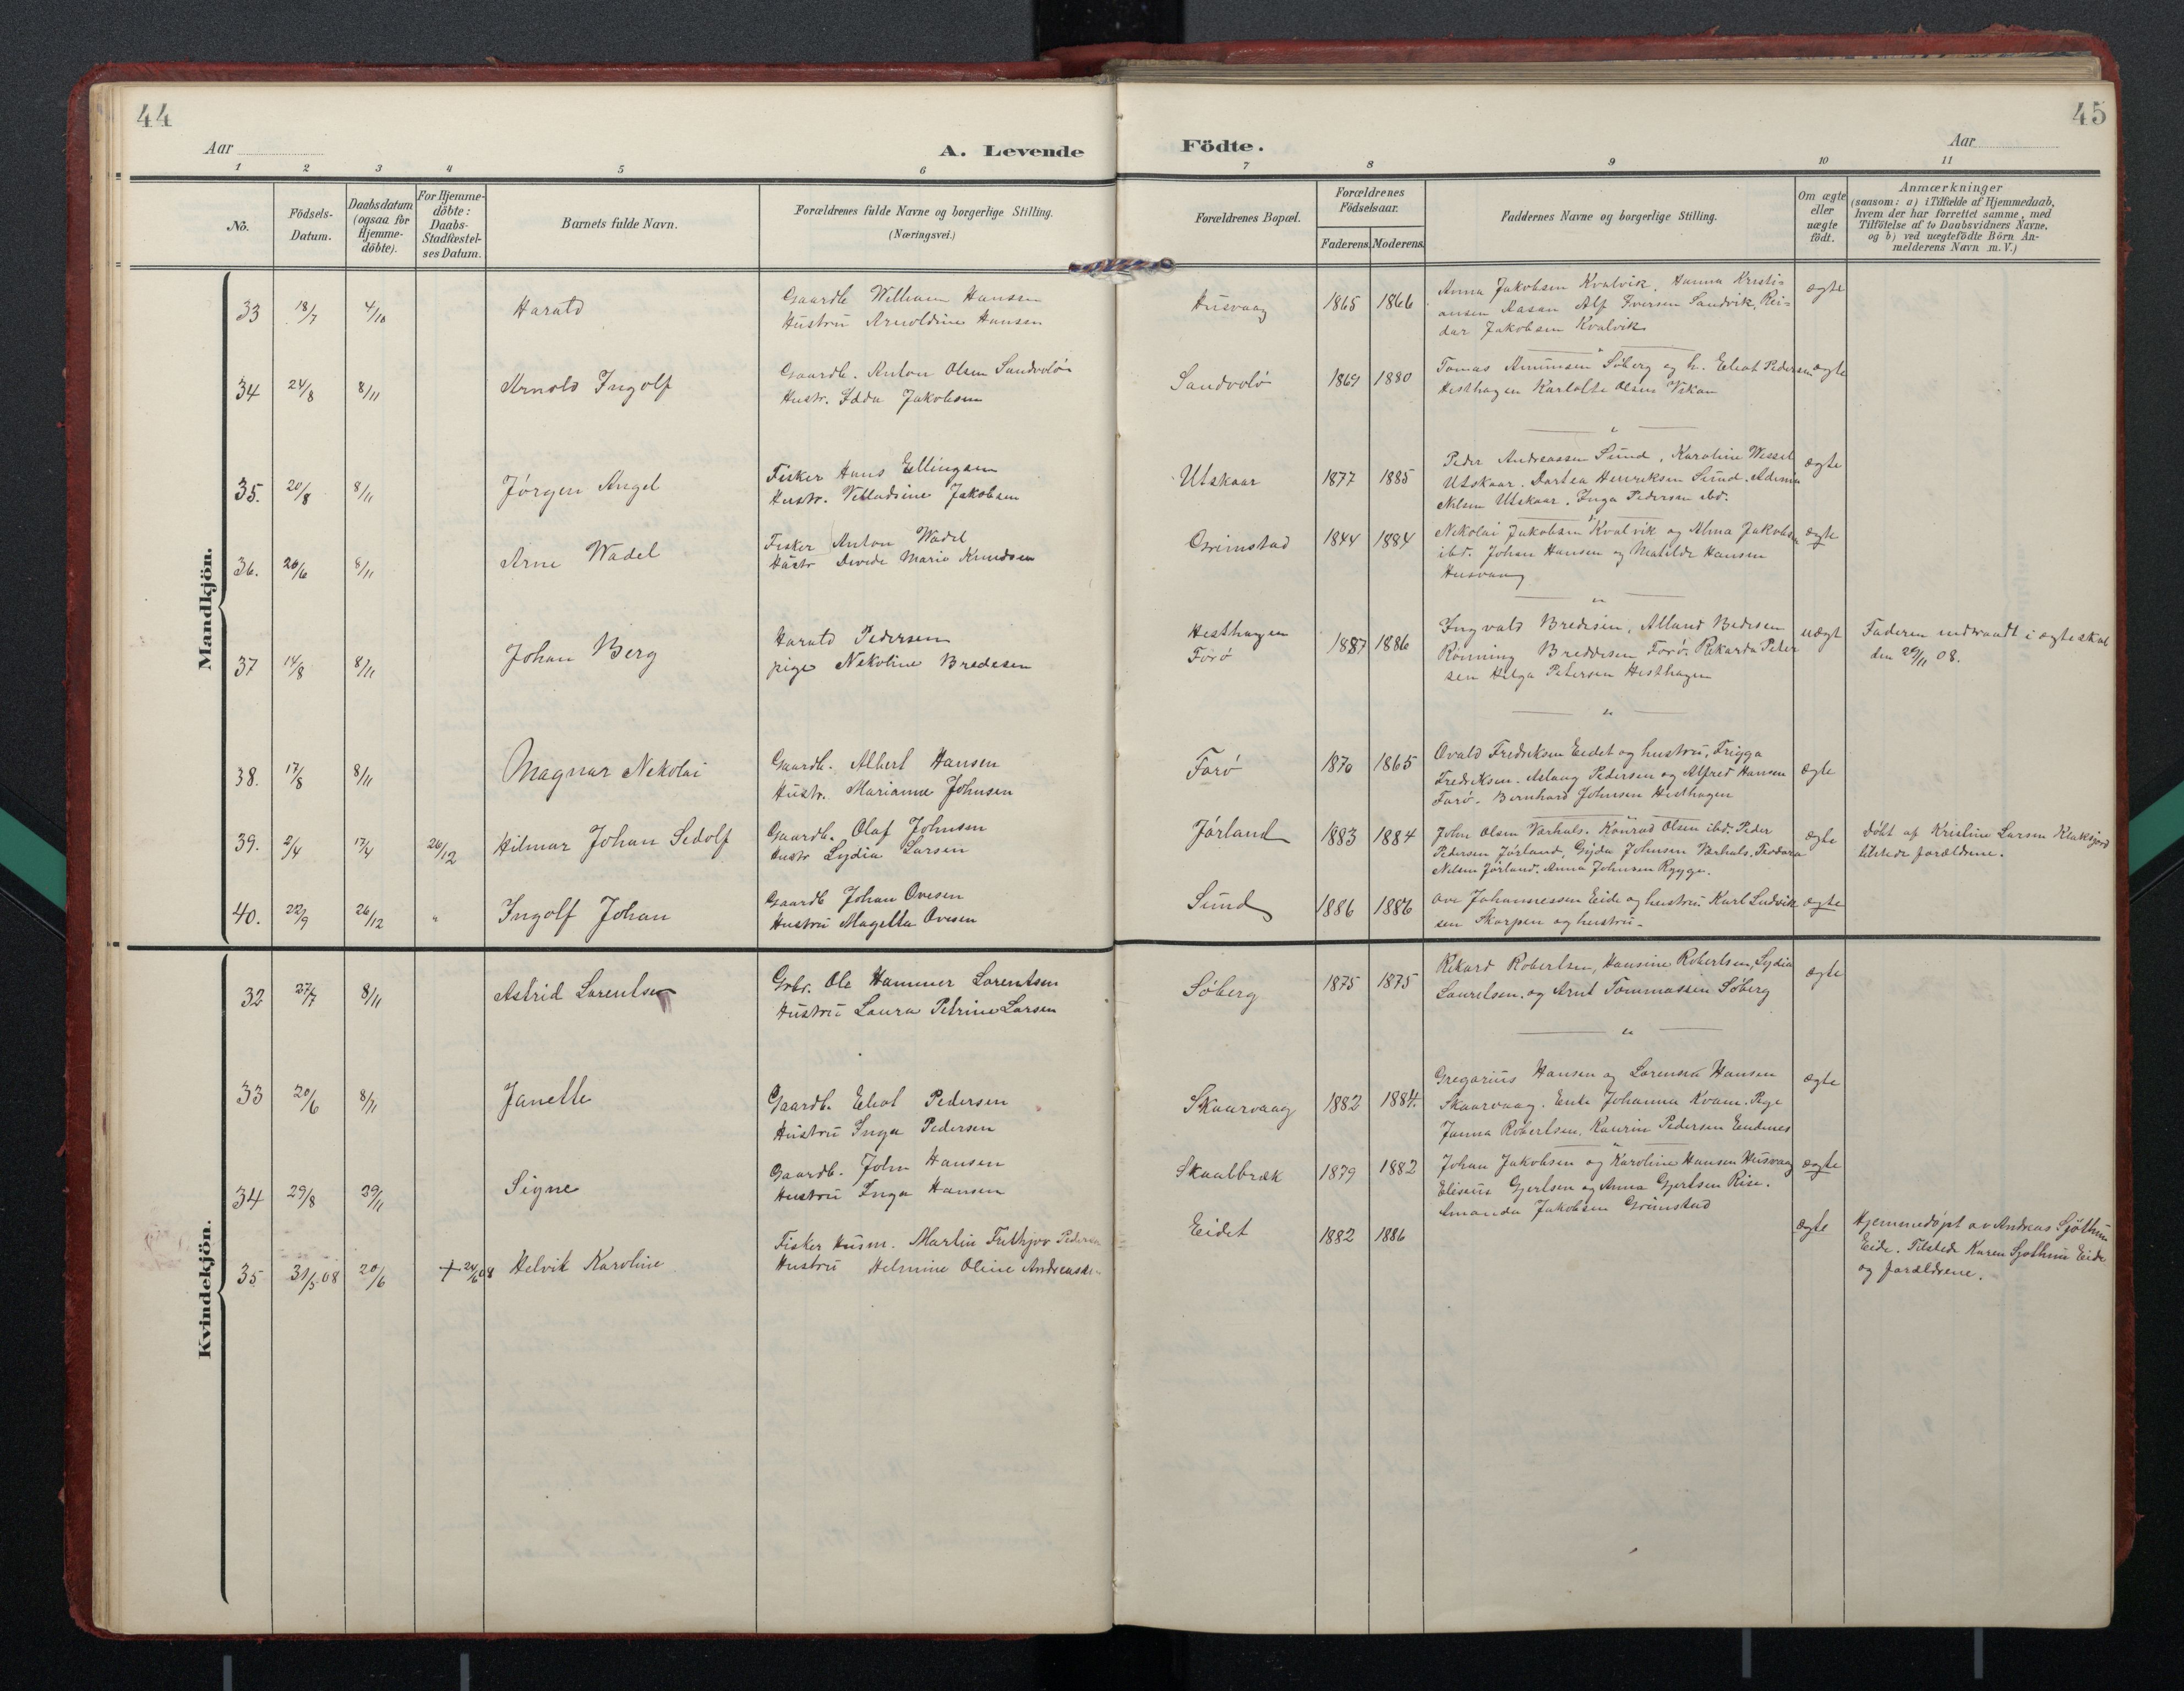 44
45
Aar
A. Levende
Födte.
Aar
1 2 3 4 5 6 7 8 9 10 11
No.
Födsels-
Datum.
Daabsdatum
(ogsaa for
Hjemme-
döbte).
For Hjemme-
döbte:
Daabs-
Stadfæstel-
ses Datum.
Barnets fulde Navn.
Forældrenes fulde Navne og borgerlige Stilling.
(Næringsvei.)
Forældrenes Bopæl.
Forældrenes
Födselsaar.
Faderens. Moderens.
Faddernes Navne og borgerlige Stilling.
Om ægte
eller
uægte
födt.
Anmærkninger
(saasom: a) i Tilfælde af Hjemmedaab,
hvem der har forrettet samme, med
Tilföielse af to Daabsvidners Navne,
og b) ved uægtefödte Börn An-
melderens Navn m. V.)
Mandkjön.
33 18/7 4/10 Harald
Gaardb. William Hansen
Hustru Arnoldine Hansen
Husvaag 1865 1866
Anna Jakobsen Kvalvik, Hanna Kristi-
ansen Aasan Alf Iversen Sandvik, Rei-
dar Jakobsen Kvalvik
ægte
34 24/8 8/11 Arnold Ingolf
Gaardb. Anton Olsen Sandvolö
Hustr. Edda Jakobsen
Sandvolö 1869 1880
Tomas Amunsen Söberg og h. Eliot Pedersen
Hesthagen Karlotte Olsen Vikan
ægte
35. 20/8 8/11 Jörgen Angel
Fisker Hans Ellingsen
Hustr. Villadsine Jakobsen
Utskaar 1877 1885
Peder Andreassen Sund, Karoline Wessel
Utskaar. Dortea Henriksen Sund. Adima
Nilsen Utskaar. Inga Pedersen ibd.
ægte
36. 26/6 8/11 Arne Wadel
Fisker Anton Wadel
Hustr Devede Marie Knudsen
Grimstad 1844 1884
Nikolai Jakobsen Kvalvik og Alma Jakobsen
ibd. Johan Hansen og Matilde Hansen
Husvaag
ægte
37 14/8 8/11 Johan Berg
Harald Pedersen
pige Nekoline Bredesen
Hesthagen
Forö
1887 1886
Ingvald Bredesen, Alland Bedesen
Rönning Breddesen Forö. Rikarda Peter
sen Helga Petersen Hesthagen
uægt
Faderen indtraadt i ægteskab
den 29/11 08.
38. 17/8 8/11 Magnar Nekolai
Gaardb. Albert Hansen
Hustr. Marianne Johnsen
Farö 1870 1865
Ovald Fredriksen Eidet og hustru, Frigga
Fredriksen. Aslaug Pedersen og Alfred Hansen
Farö. Bernhard Johnsen Hesthagen
ægte
39. 2/4 17/4 26/12 Hilmar Johan Sedolf
Gaardb. Olaf Johnsen
Hustr Lydia Larsen
Jörland 1883 1884
John Olsen Varhals. Konrad Olsen ibd. Peder
Pedersen Jörland, Gyda Johnsen Varhals. Teodora
Nelsen Jörland. Anna Johnsen Rygge.
ægte
döbt af Kristine Larsen Klaksjord
tilstede forældrene.
40. 22/9 26/12 " Ingolf Johan
Gaardb Johan Ovesen
Hustru Magella Ovesen
Sund 1886 1886
Ove Johannessen Eide og hustru Karl Ludvik
sen Skarpen og hustru.
ægte
Kvindekjön.
32 27/7 8/11 Astrid Lorentsen
Grbr. Ole Hammer Lorentsen
Hustru Laura Petrine Larsen
Söberg 1875 1875
Rikard Robertsen, Hansine Robertsen, Lydia
Lauretsen. og Arnt Tommassen Söberg
ægte
33 20/6 8/11 Janelle
Gaardb. Eliot Pedersen
Hustru Inga Pedersen
Skaarvaag 1882 1884.
Gregorius Hansen og Lorensa Hansen
Skaarvaag. Enke Johanna Kvam. Pige
Janna Robertsen. Kaurin Pedersen Eudnes
ægte
34 29/8 29/11 Signe
Gaardb. John Hansen
Hustru Inga Hansen
Skaalbræk 1879 1882
Johan Jakobsen og Karoline Hansen Husvaag
Eliseus Gjertsen og Anna Gjertsen Rise.
Amanda Jakobsen Grimstad
ægte
35 31/5.08 20/6 + 24/6 08 Helvik Karoline
Fisker Husm. Martin Frithjov Pedersen
Hustru Helmine Oline Andreas
Eidet 1882 1886
ægte
Hjemmedöpt av Andreas Sjöthun
Eide. Tilstede Karen Sjöthun Eide
og forældrene.